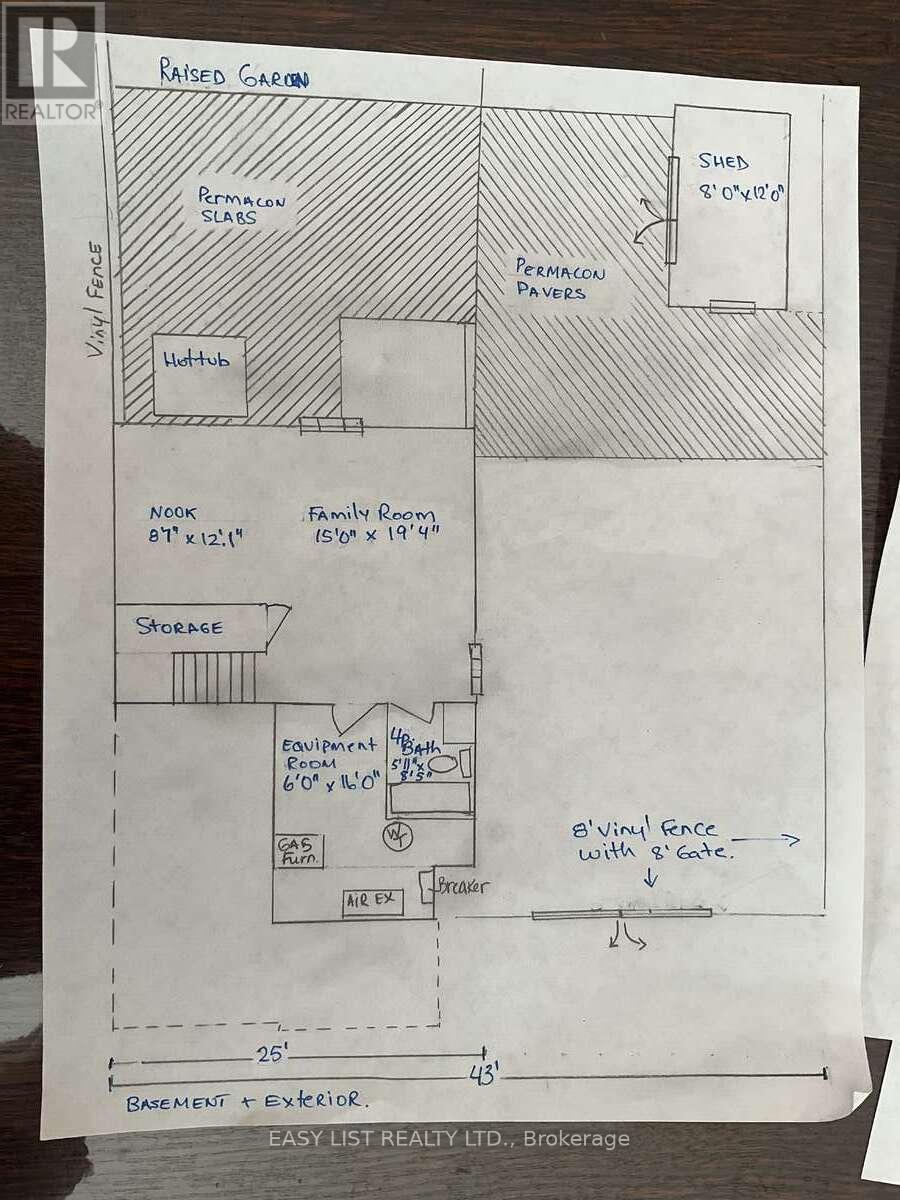 REALTOR®
RAISED GARDEN
PERMACON
SLABS
SHED
8'0"x12'0"
Vinyl FENCE
PERMACON
PAVERS
Hottub
NOOK
87" x 12'.1"
Family Room
15'0" x 19'4"
STORAGE
EQUIPMENT
ROOM
6'0" x 16'0"
4p.
BATH
5'11" x
8'5"
GAS
Furn.
WT
AIR EX
Breaker
8' Vinyl Fence
with 8' Gate.
25'
43'
BASEMENT + EXTERIOR.
EASY LIST REALTY LTD., Brokerage